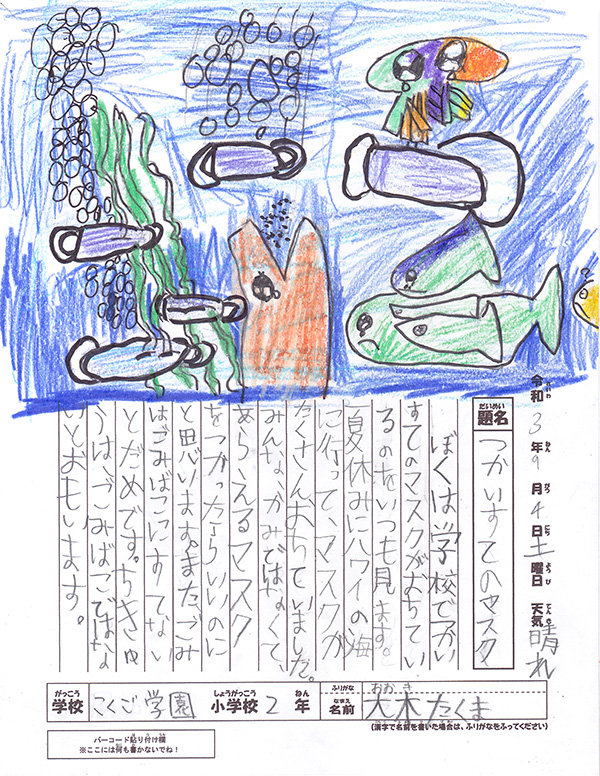 令和3年9月4日土曜日 天気 晴れ
れいわ ねん がつ にち どようび てんき
だいめい
題名 つかいすてのマスク
ぼくは学校でつかい
すてのマスクがおちてい
るのをいつも見ます。
夏休みにハワイの海
に行って、マスクが
たくさんおちていました。
みんなかみではなくて、
あらえるマスク
をつかったらいいのに
と思います。また、ごみ
はごみばこにすてない
とだめです。ちきゅ
うは、ごみばこではな
いとおもいます。
がっこう しょうがっこう ねん ふりがな おおき
学校 こくご学園 小学校 2 年 名前 大木たくま
なまえ
(漢字で名前を書いた場合は、ふりがなをふってください)
バーコード貼り付け欄
※ここには何も書かないでね！